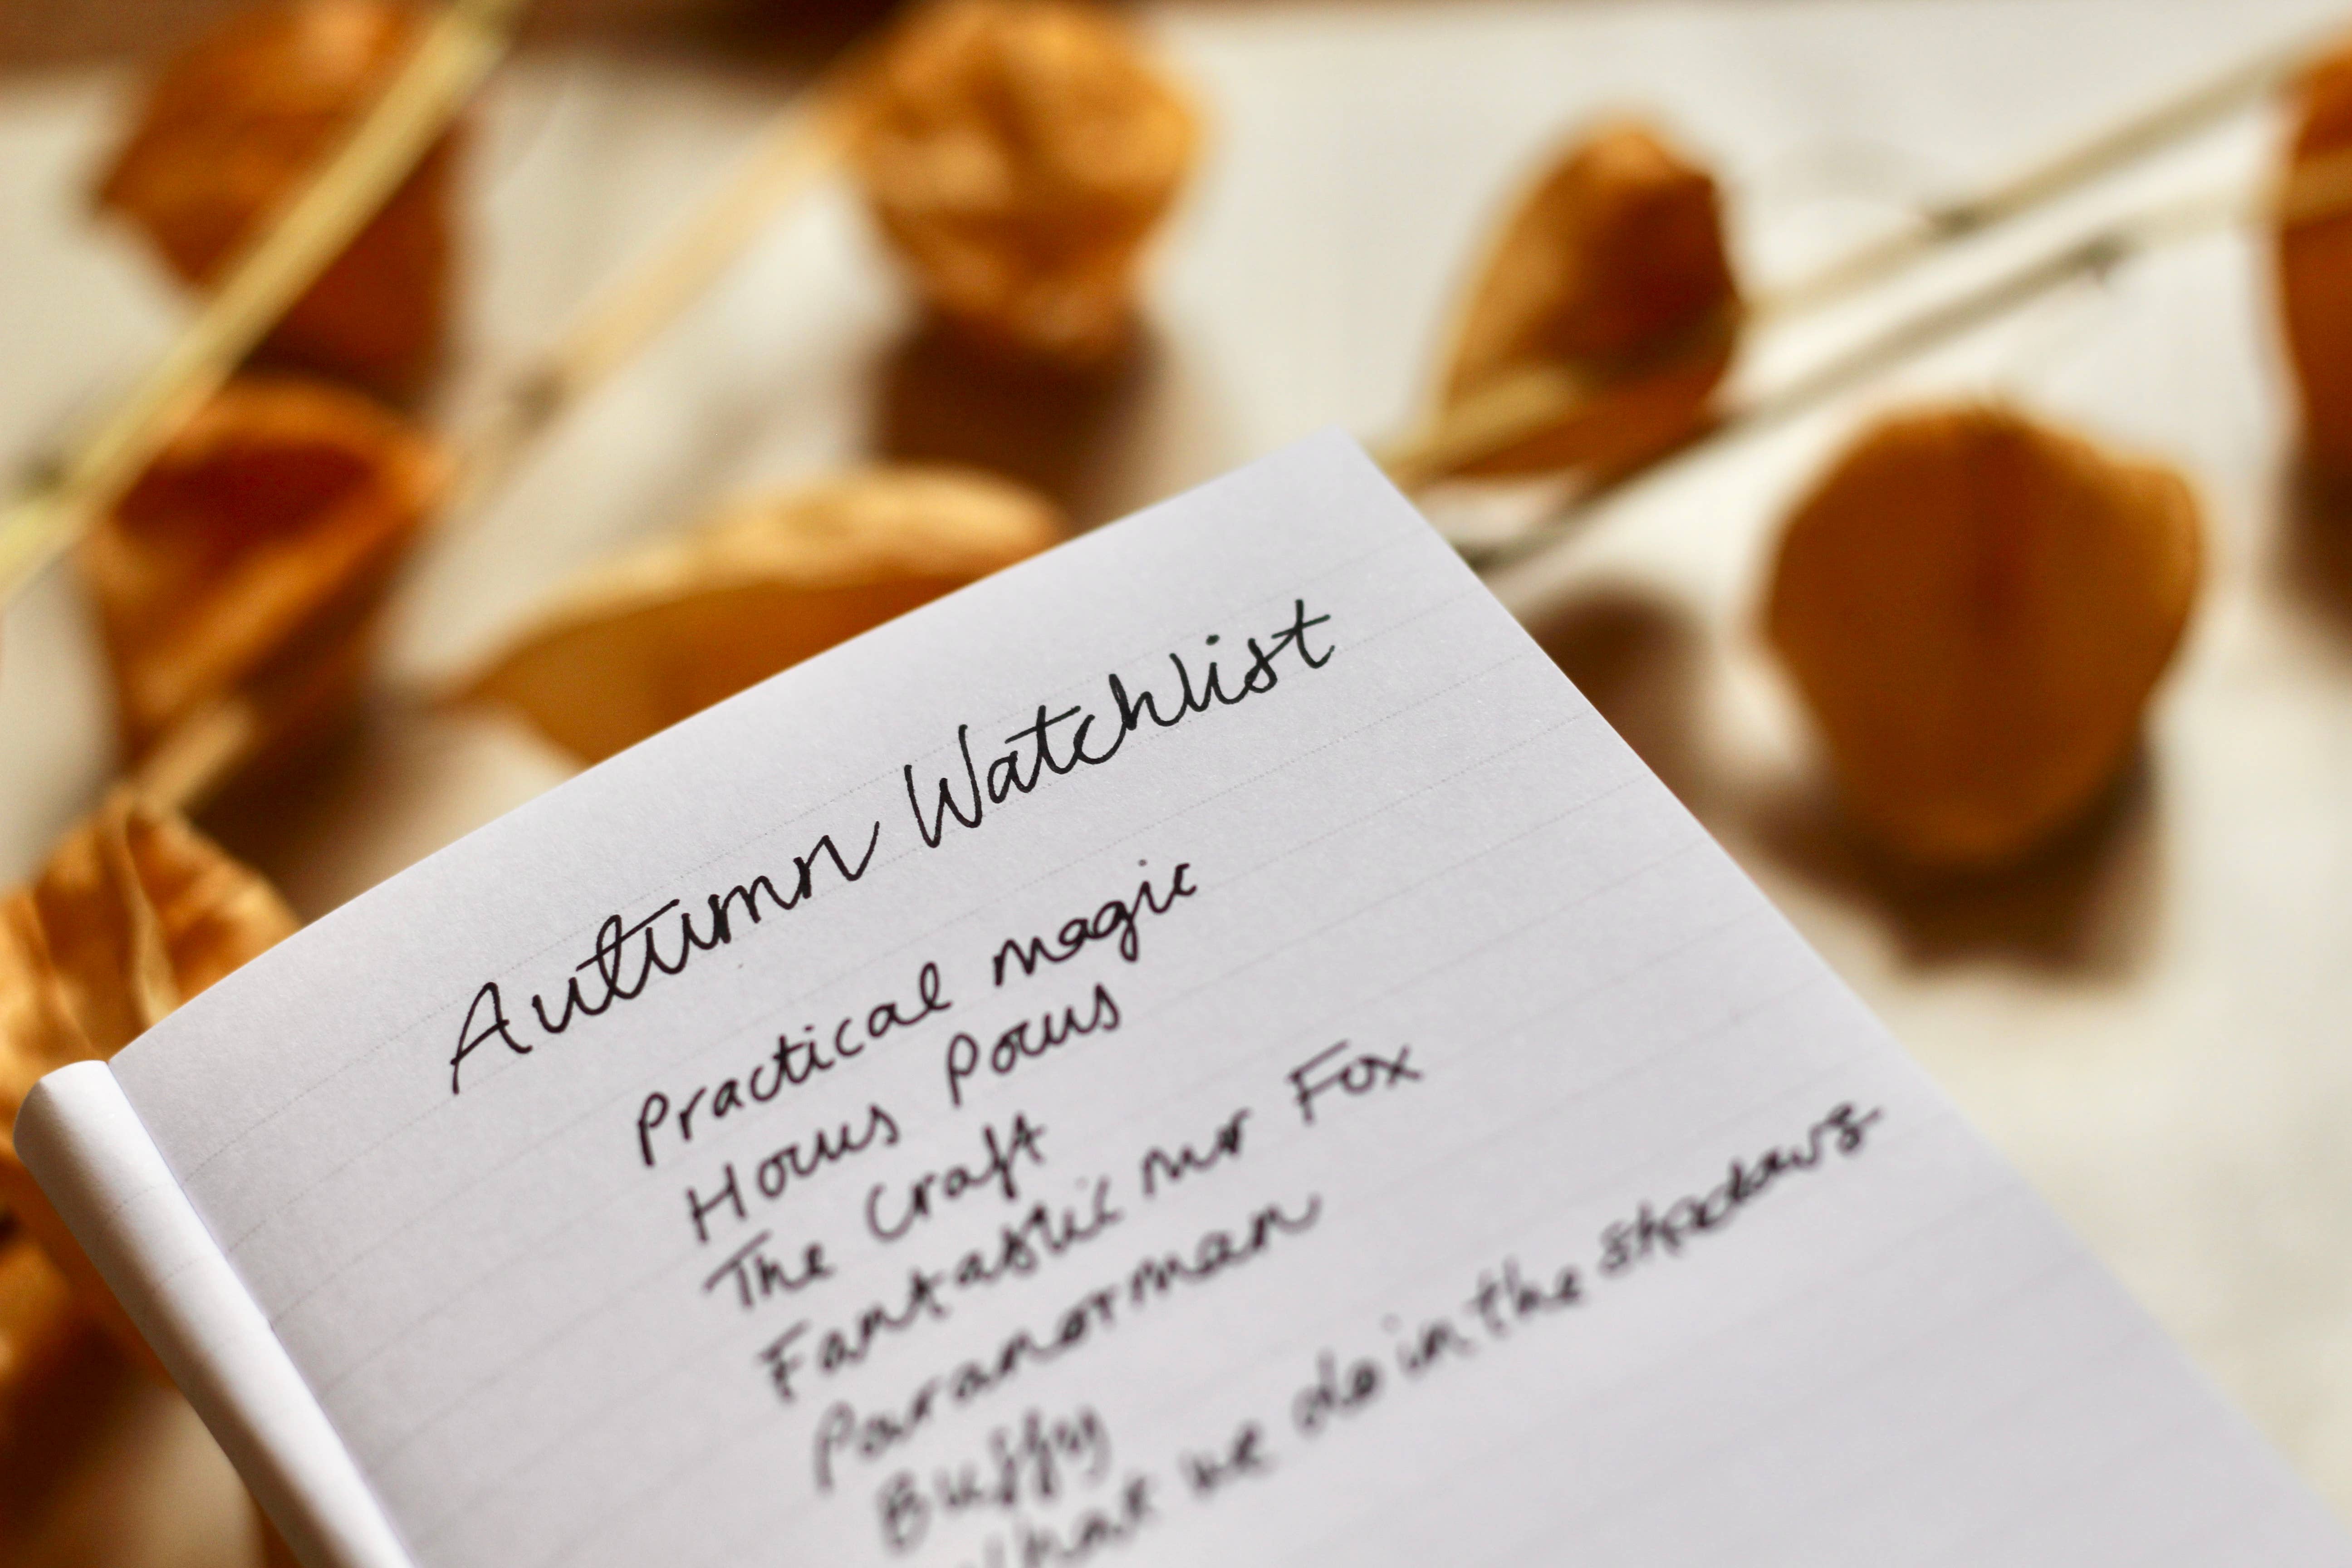 Autumn Watchlist
Practical magic
Hocus Pocus
The Craft
Fantastic mr Fox
Paranorman
Buffy
What we do in the shadows